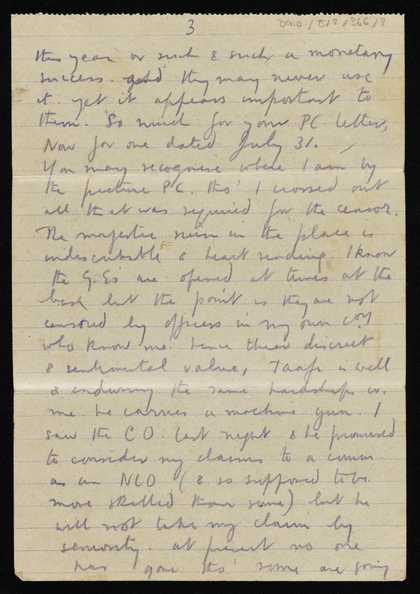 3
this year or such & such a monetary
success. and they may never use
it. yet it appears important to
them. So much for your PC letter,
Now for one dated July 31.
You may recognise where I am by
the picture P.C. tho' I crossed out
all that was required for the censor.
The majestic ruin in the place is
indescribable & heart rending. I know
the G.Es are opened at times at the
base but the point is they are not
censored by officers in my own Coy
who know me. hence their discreet
& sentimental value, is well
& enduring the same hardships as
me. he carries a machine gun. I
saw the C.O. last night & he promised
to consider my claims to a comm.
as an NCO (& so supposed to be
more skilled than some) but he
will not take my claim by
seniority. at present no one
has gone tho' some are going